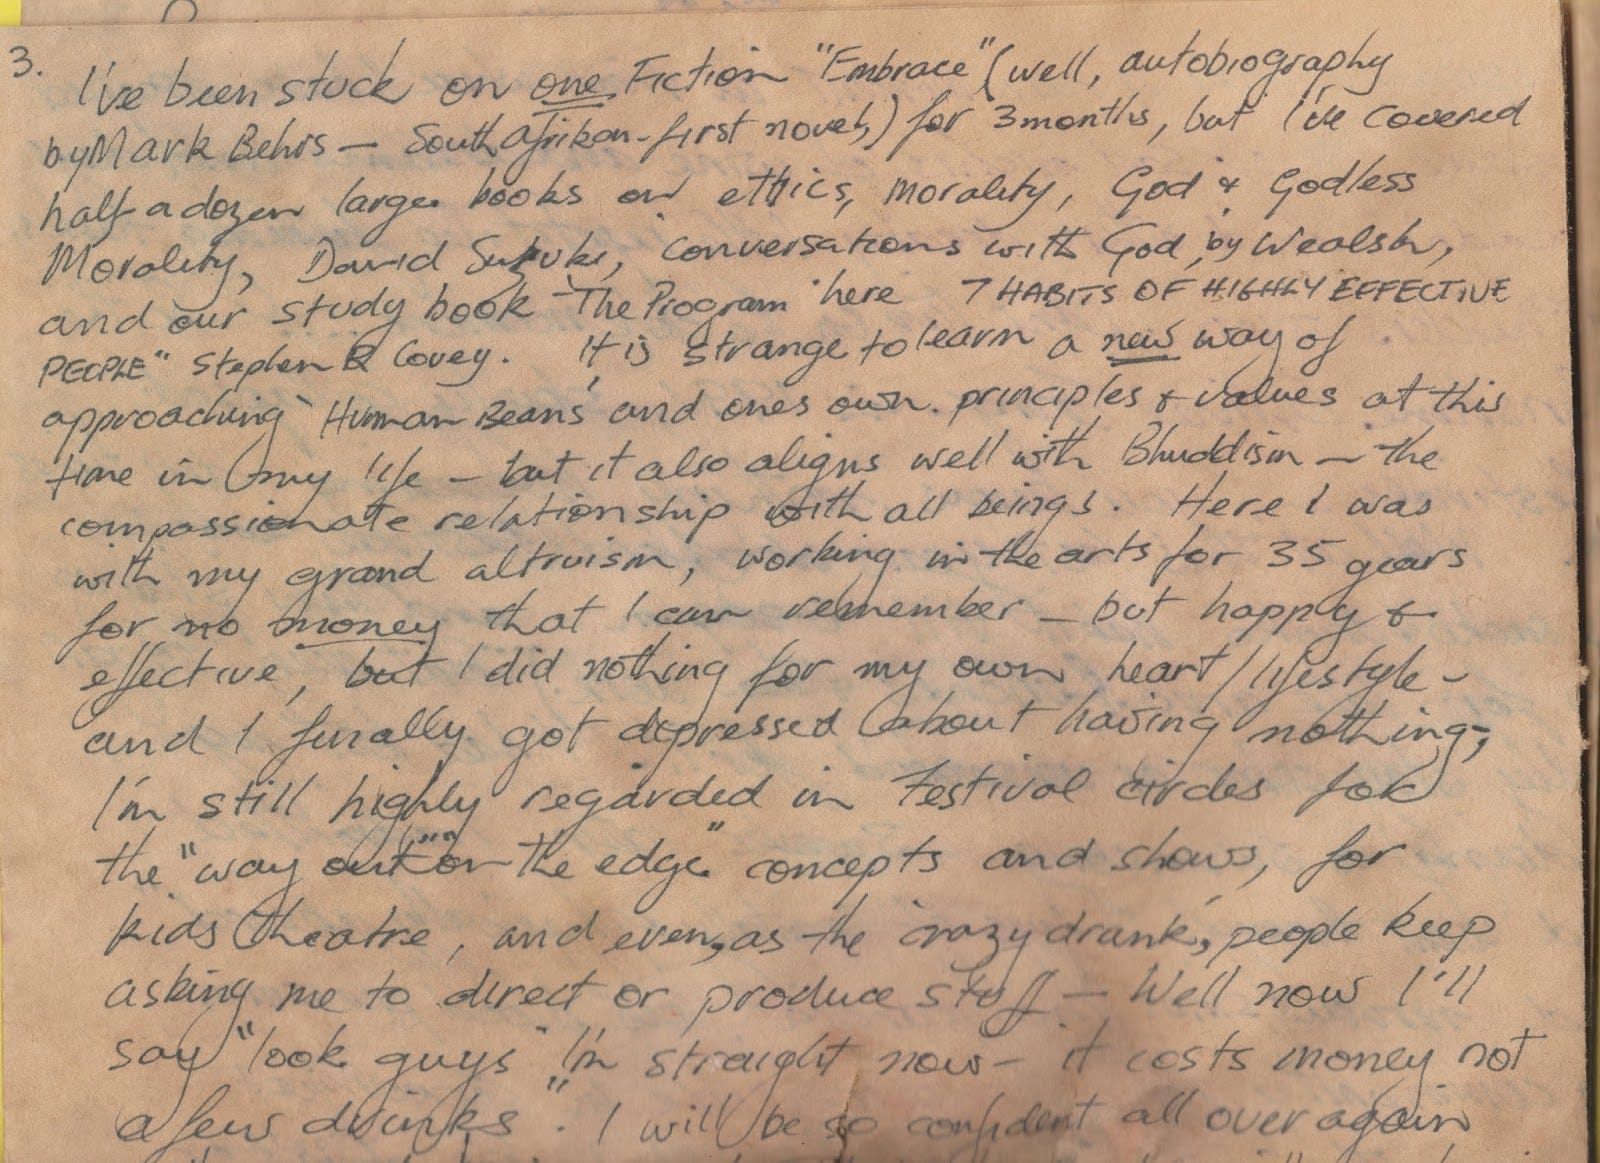 3. I've been stuck on one Fiction "Embrace" (well, autobiography
by Mark Behrs — South Afrikan - first novel,) for 3 months, but I've covered
half a dozen large books on ethics, morality, God & Godless
Morality, David Suzuki, conversations with God, by Wealsh,
and our study book 'The Program' here 7 HABITS OF HIGHLY EFFECTIVE
PEOPLE" Stephen R Covey. It is strange to learn a new way of
approaching 'Human Beans' and ones own principles & values at this
time in my life – but it also aligns well with Bhuddism – the
compassionate relationship with all beings. Here I was
with my grand altruism, working in the arts for 35 years
for no money that I can remember – but happy &
effective, but I did nothing for my own heart/lifestyle –
and I finally got depressed about having nothing;
I'm still highly regarded in Festival circles for
the "way out" "on the edge" concepts and shows, for
kids theatre, and even, as the 'crazy drank', people keep
asking me to direct or produce stuff – Well now I'll
say "look guys" I'm straight now – it costs money not
a few drinks." I will be so confident all over again